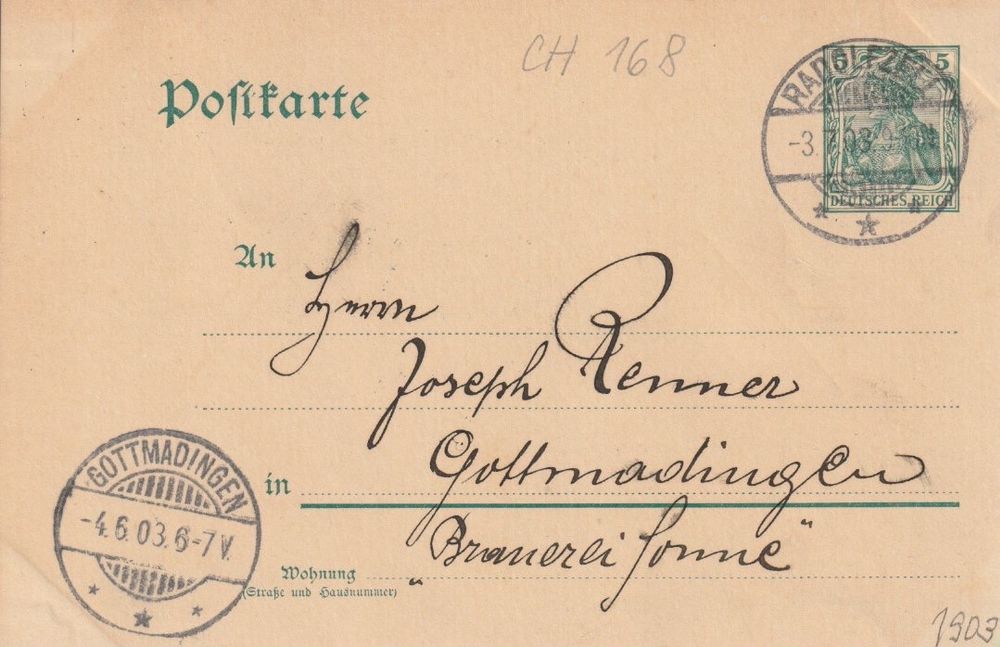 CH 168
Postkarte
5 5
RADOLFZELL
-3. 03.
DEUTSCHES REICH
An
Herrn
Joseph Renner
in Gottmadingen
„Brauerei Sonne“
Wohnung
(Straße und Hausnummer)
GOTTMADINGEN
-4.6.03.6-7V.
1903